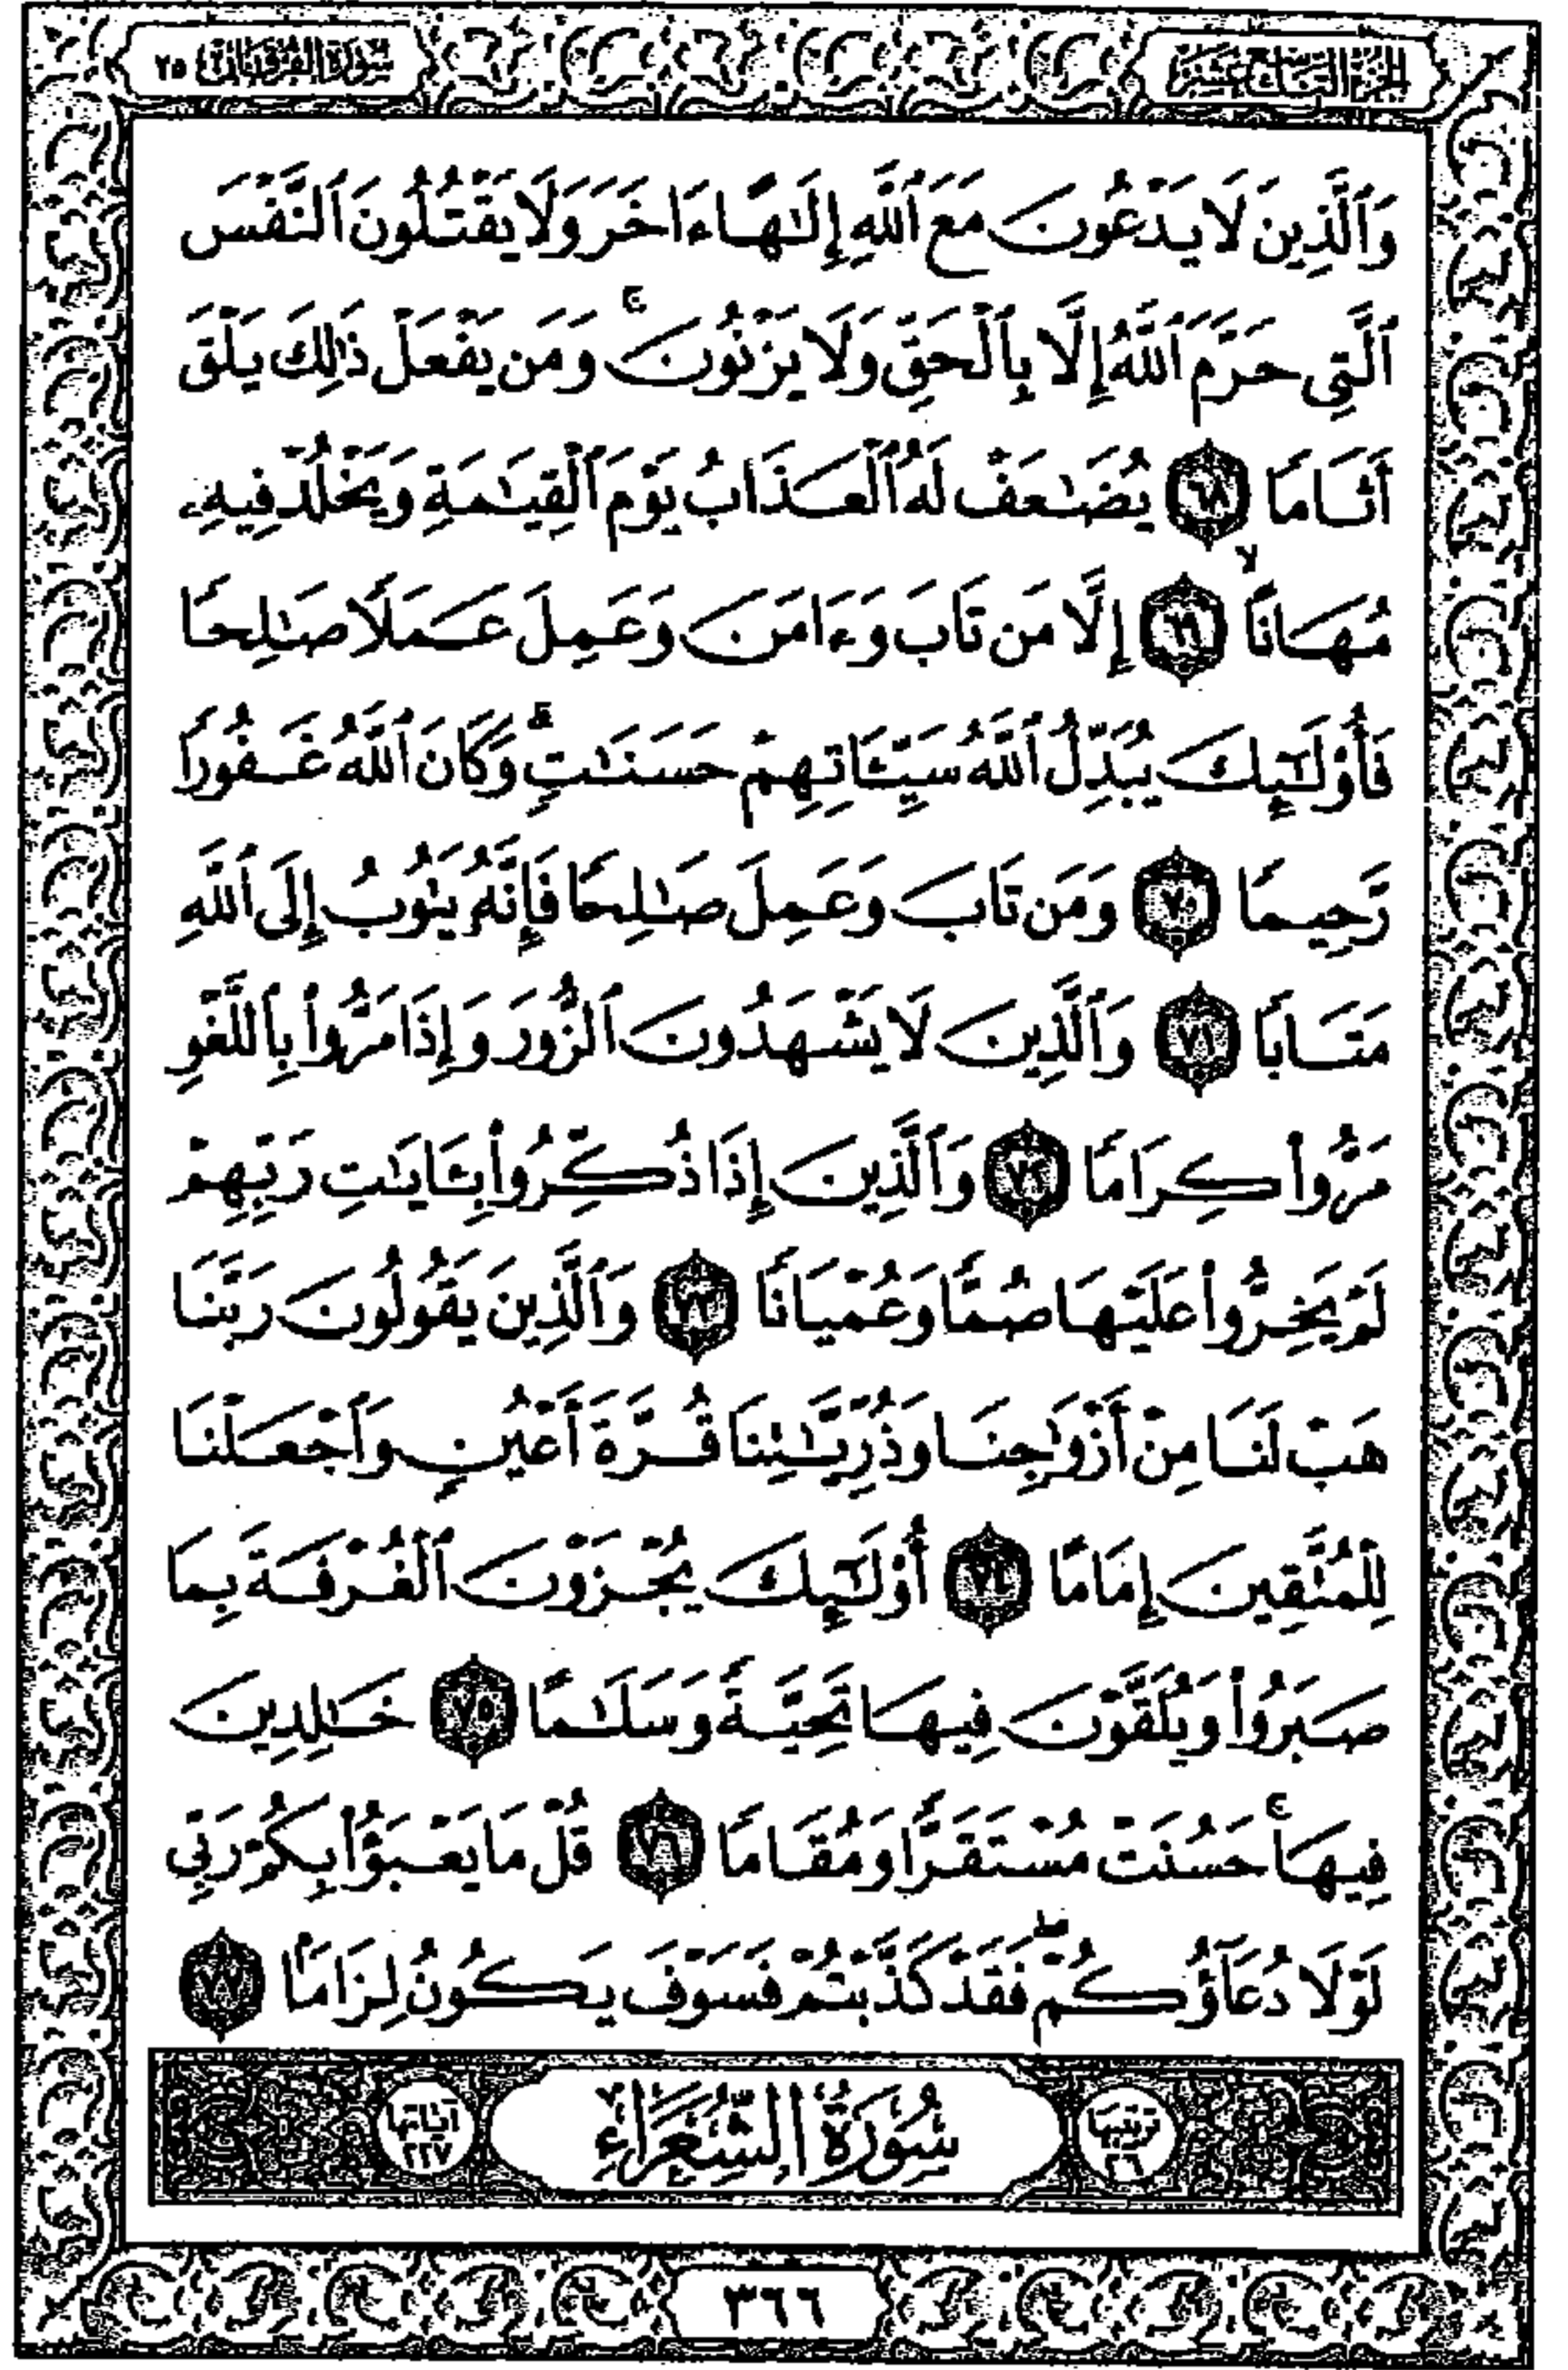 الجزء التاسع عشر
سورة الفرقان ٢٥
وَٱلَّذِينَ لَا يَدْعُونَ مَعَ ٱللَّهِ إِلَٰهًا ءَاخَرَ وَلَا يَقْتُلُونَ ٱلنَّفْسَ
ٱلَّتِي حَرَّمَ ٱللَّهُ إِلَّا بِٱلْحَقِّ وَلَا يَزْنُونَ ۚ وَمَن يَفْعَلْ ذَٰلِكَ يَلْقَ
أَثَامًا ٦٨ يُضَٰعَفْ لَهُ ٱلْعَذَابُ يَوْمَ ٱلْقِيَٰمَةِ وَيَخْلُدْ فِيهِۦ
مُهَانًا ۙ ٦٩ إِلَّا مَن تَابَ وَءَامَنَ وَعَمِلَ عَمَلًا صَٰلِحًا
فَأُو۟لَٰٓئِكَ يُبَدِّلُ ٱللَّهُ سَيِّـَٔاتِهِمْ حَسَنَٰتٍ ۗ وَكَانَ ٱللَّهُ غَفُورًا
رَّحِيمًا ٧٠ وَمَن تَابَ وَعَمِلَ صَٰلِحًا فَإِنَّهُۥ يَتُوبُ إِلَى ٱللَّهِ
مَتَابًا ٧١ وَٱلَّذِينَ لَا يَشْهَدُونَ ٱلزُّورَ وَإِذَا مَرُّوا۟ بِٱللَّغْوِ
مَرُّوا۟ كِرَامًا ٧٢ وَٱلَّذِينَ إِذَا ذُكِّرُوا۟ بِـَٔايَٰتِ رَبِّهِمْ
لَمْ يَخِرُّوا۟ عَلَيْهَا صُمًّا وَعُمْيَانًا ٧٣ وَٱلَّذِينَ يَقُولُونَ رَبَّنَا
هَبْ لَنَا مِنْ أَزْوَٰجِنَا وَذُرِّيَّٰتِنَا قُرَّةَ أَعْيُنٍ وَٱجْعَلْنَا
لِلْمُتَّقِينَ إِمَامًا ٧٤ أُو۟لَٰٓئِكَ يُجْزَوْنَ ٱلْغُرْفَةَ بِمَا
صَبَرُوا۟ وَيُلَقَّوْنَ فِيهَا تَحِيَّةً وَسَلَٰمًا ٧٥ خَٰلِدِينَ
فِيهَا ۚ حَسُنَتْ مُسْتَقَرًّا وَمُقَامًا ٧٦ قُلْ مَا يَعْبَؤُا۟ بِكُمْ رَبِّي
لَوْلَا دُعَآؤُكُمْ ۖ فَقَدْ كَذَّبْتُمْ فَسَوْفَ يَكُونُ لِزَامًۢا ٧٧
ترتيبها ٢٦
سُورَةُ الشُّعَرَاءِ
آياتها ٢٢٧
٣٦٦